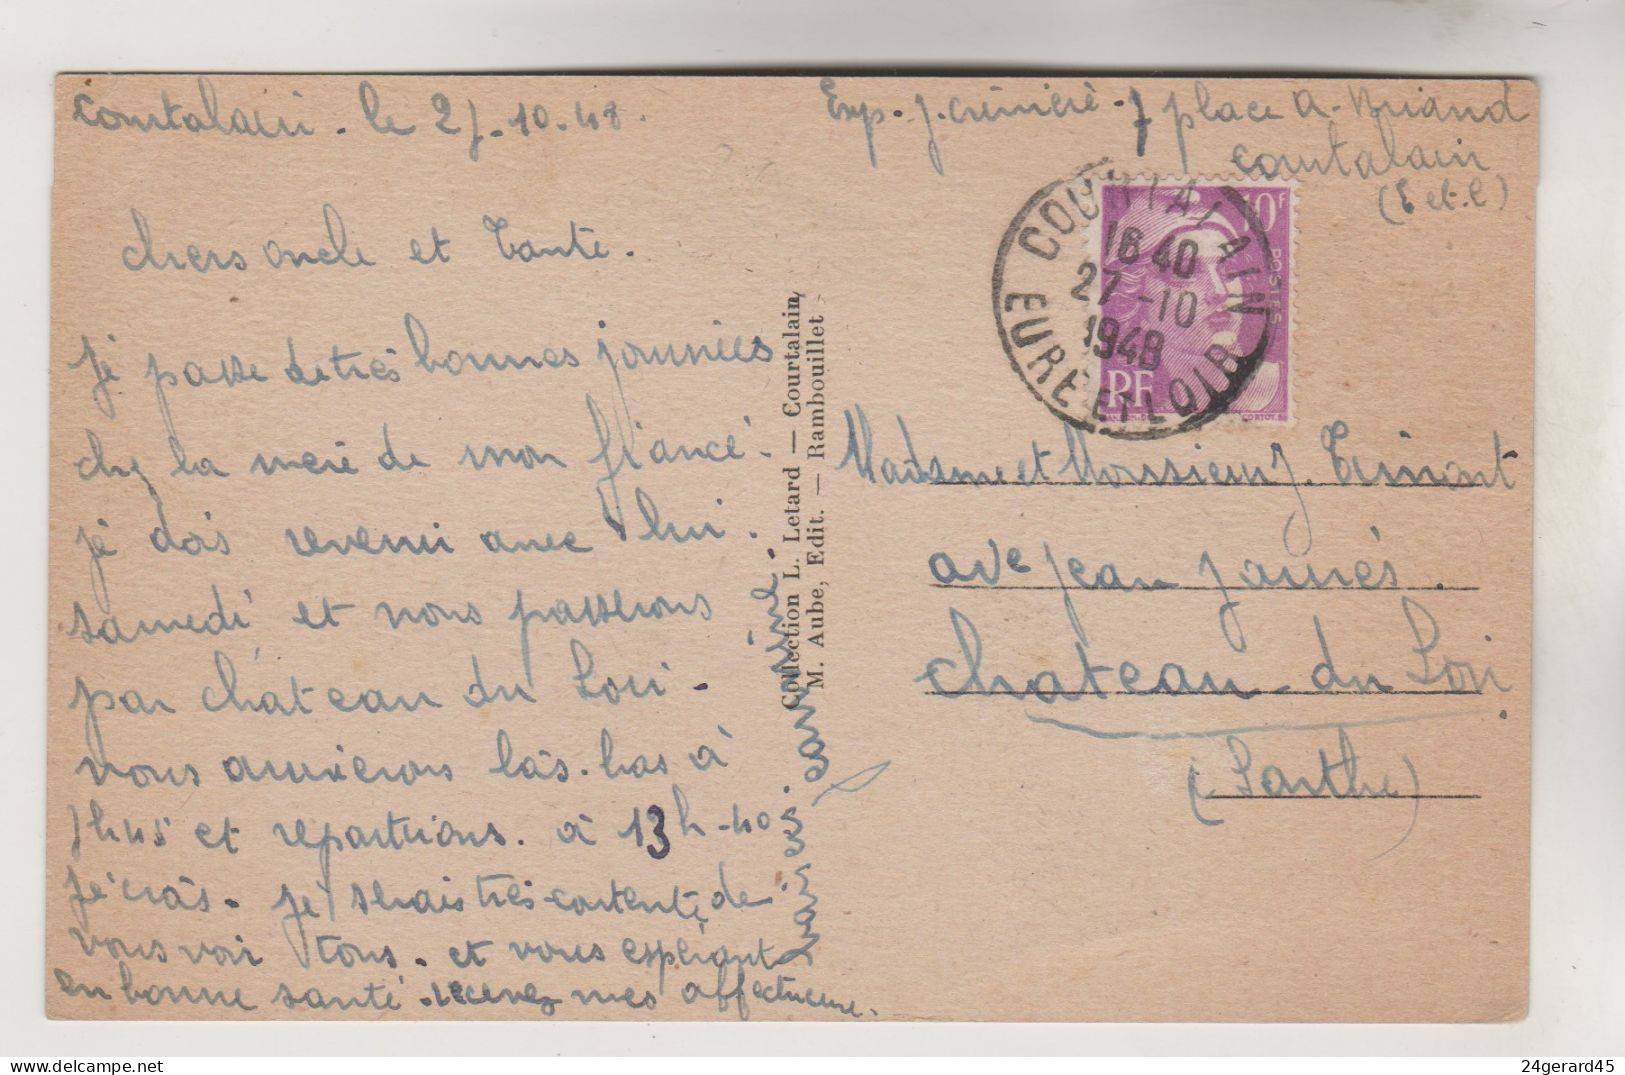 Courtalain. le 27-10-48.
Chers oncle et Tante.
Je passe de très bonnes journées
chez la mère de mon fiancé.
je dois revenir avec lui.
samedi et nous passerons
par Château du Loir.
nous arriverons làs-bas à
1h45 et repartirons. à 13h-40
je crois. je serais très contente de
vous voir tous. et vous espérant
en bonne santé. recevez mes affectueux.
baisers
Collection L. Letard — Courtalain
M. Aube, Edit. — Rambouillet
Exp. J. Crémière - 7 place A. Briand
Courtalain
(E et.L)
COURTALAIN
16 40
27-10
1948
EURE ET LOIR
10F
POSTES
RF
Madame et Monsieur J.
ave Jean Jaurés.
Château-du Loir
(Sarthe)
24gerard45